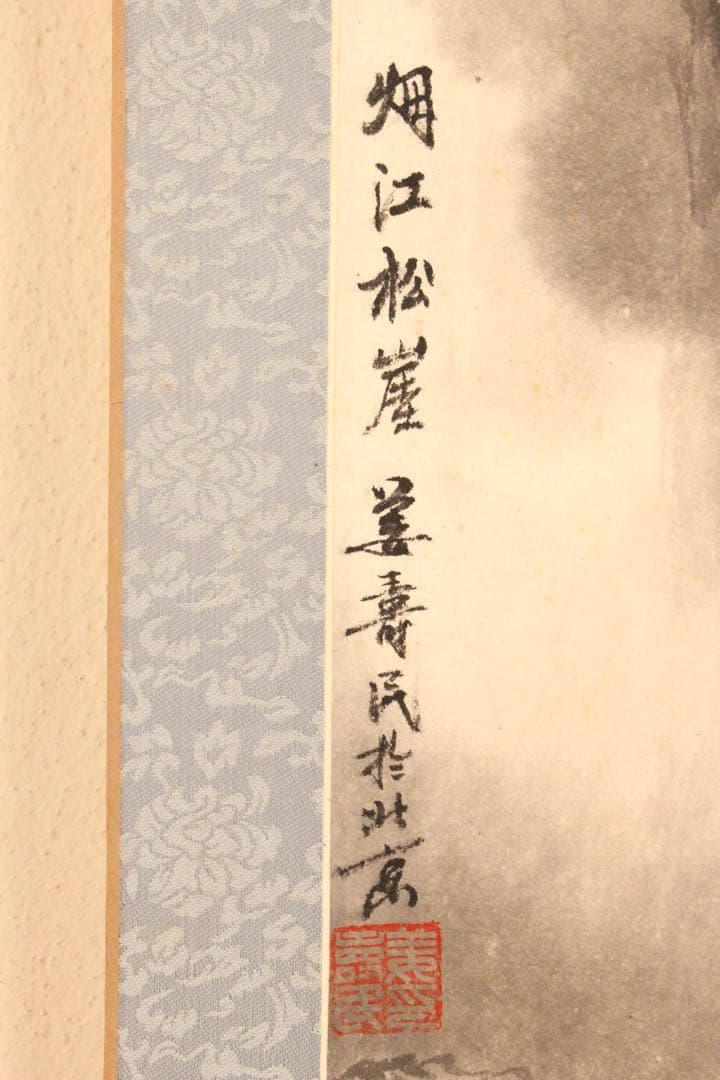 烟江松崖 姜寿民於北京